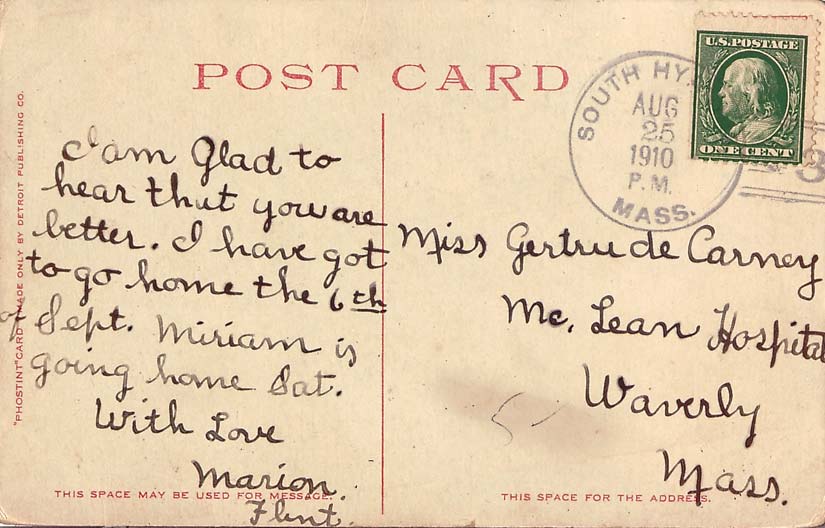 POST CARD
SOUTH HY
AUG
25
1910
P.M.
MASS.
U.S.POSTAGE
ONE CENT
3
"PHOSTINT" CARD MADE ONLY BY DETROIT PUBLISHING CO.
I am Glad to
hear that you are
better. I have got
to go home the 6th
of Sept. Miriam is
going home Sat.
With Love
Marion.
Flint.
Miss Gertrude Carney
Mc. Lean Hospital
Waverly
Mass.
THIS SPACE MAY BE USED FOR MESSAGE.
THIS SPACE FOR THE ADDRESS.